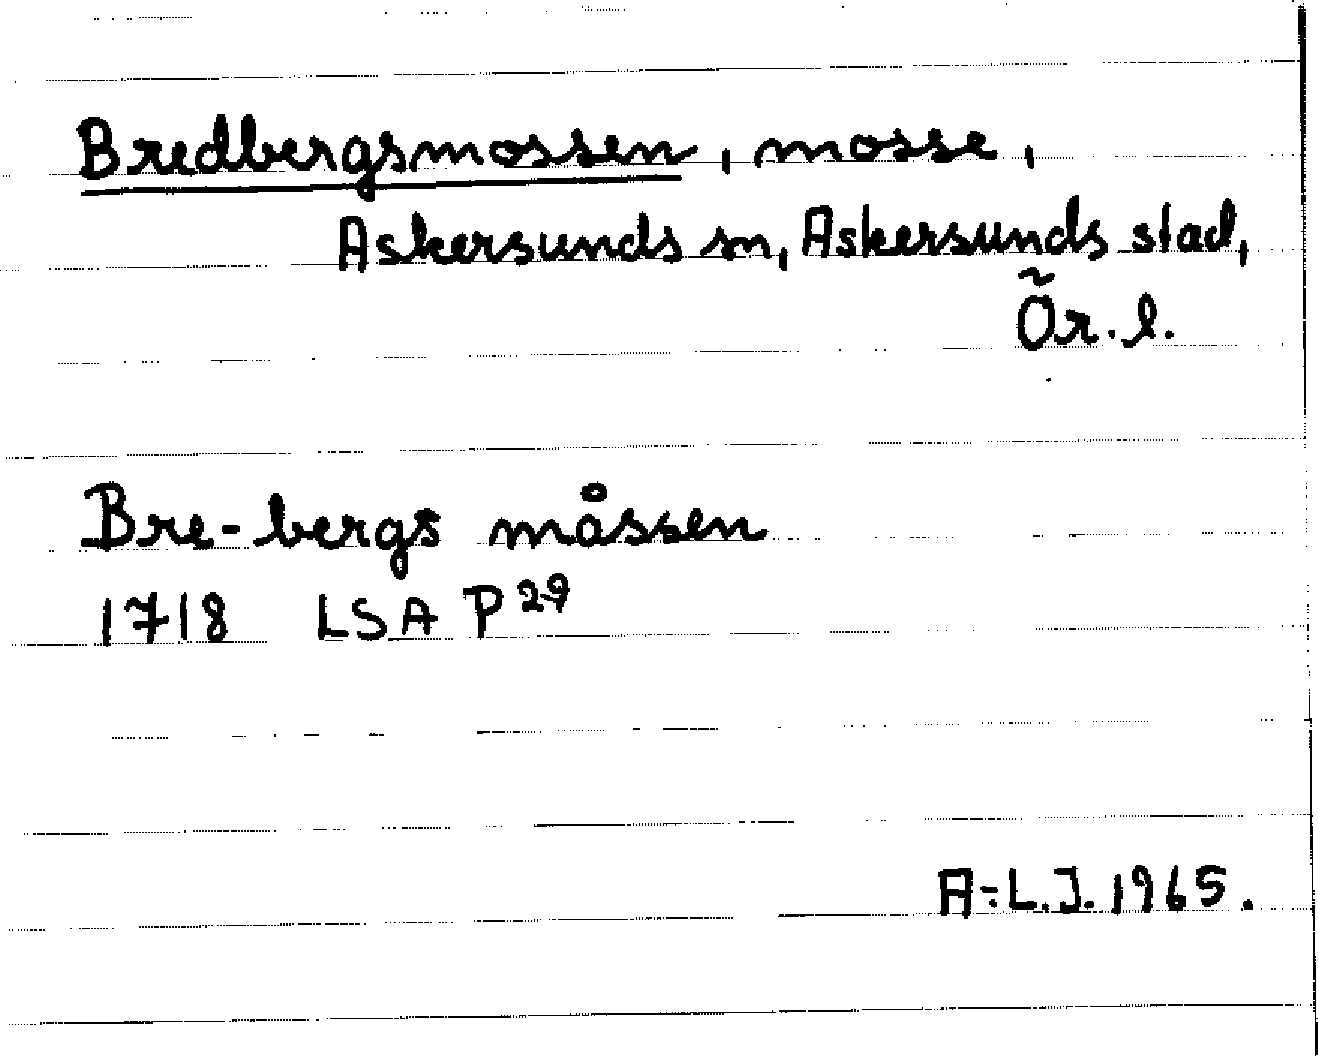 Bredbergsmossen, mosse,
Askersunds sn, Askersunds stad,
Ör. l.
Bre-bergs måssen
1718 LSA P 29
A-L.J. 1965.